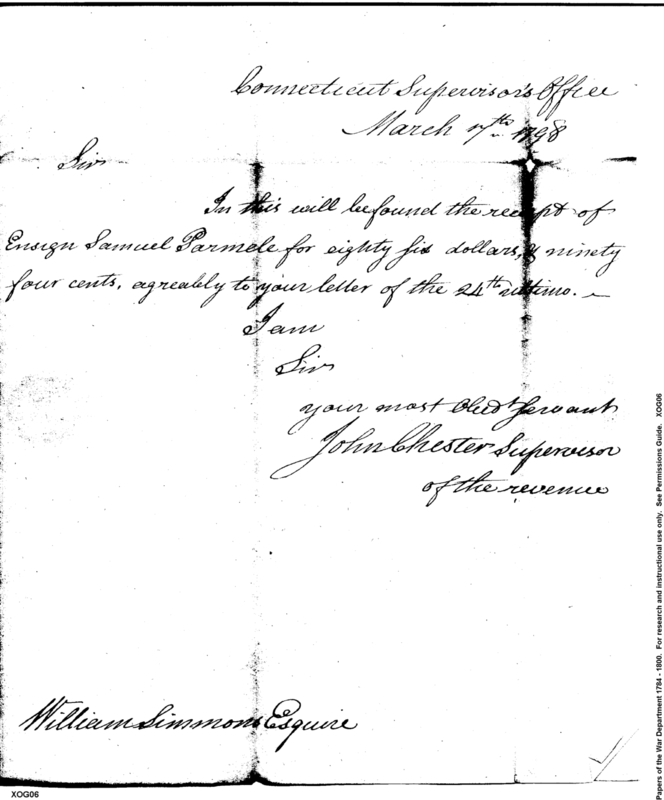 Connecticut Supervisor's Office
March 7th 1798
Sir
In this will be found the receipt of
Ensign Samuel Parmele for eighty six dollars, & ninety
four cents, agreably to your letter of the 24th ultimo. —
I am
Sir
your most Obedt Servant
John Chester Supervisor
of the revenue
William Simmons Esquire
XOG06
Papers of the War Department 1784 - 1800. For research and instructional use only. See Permissions Guide. XOG06